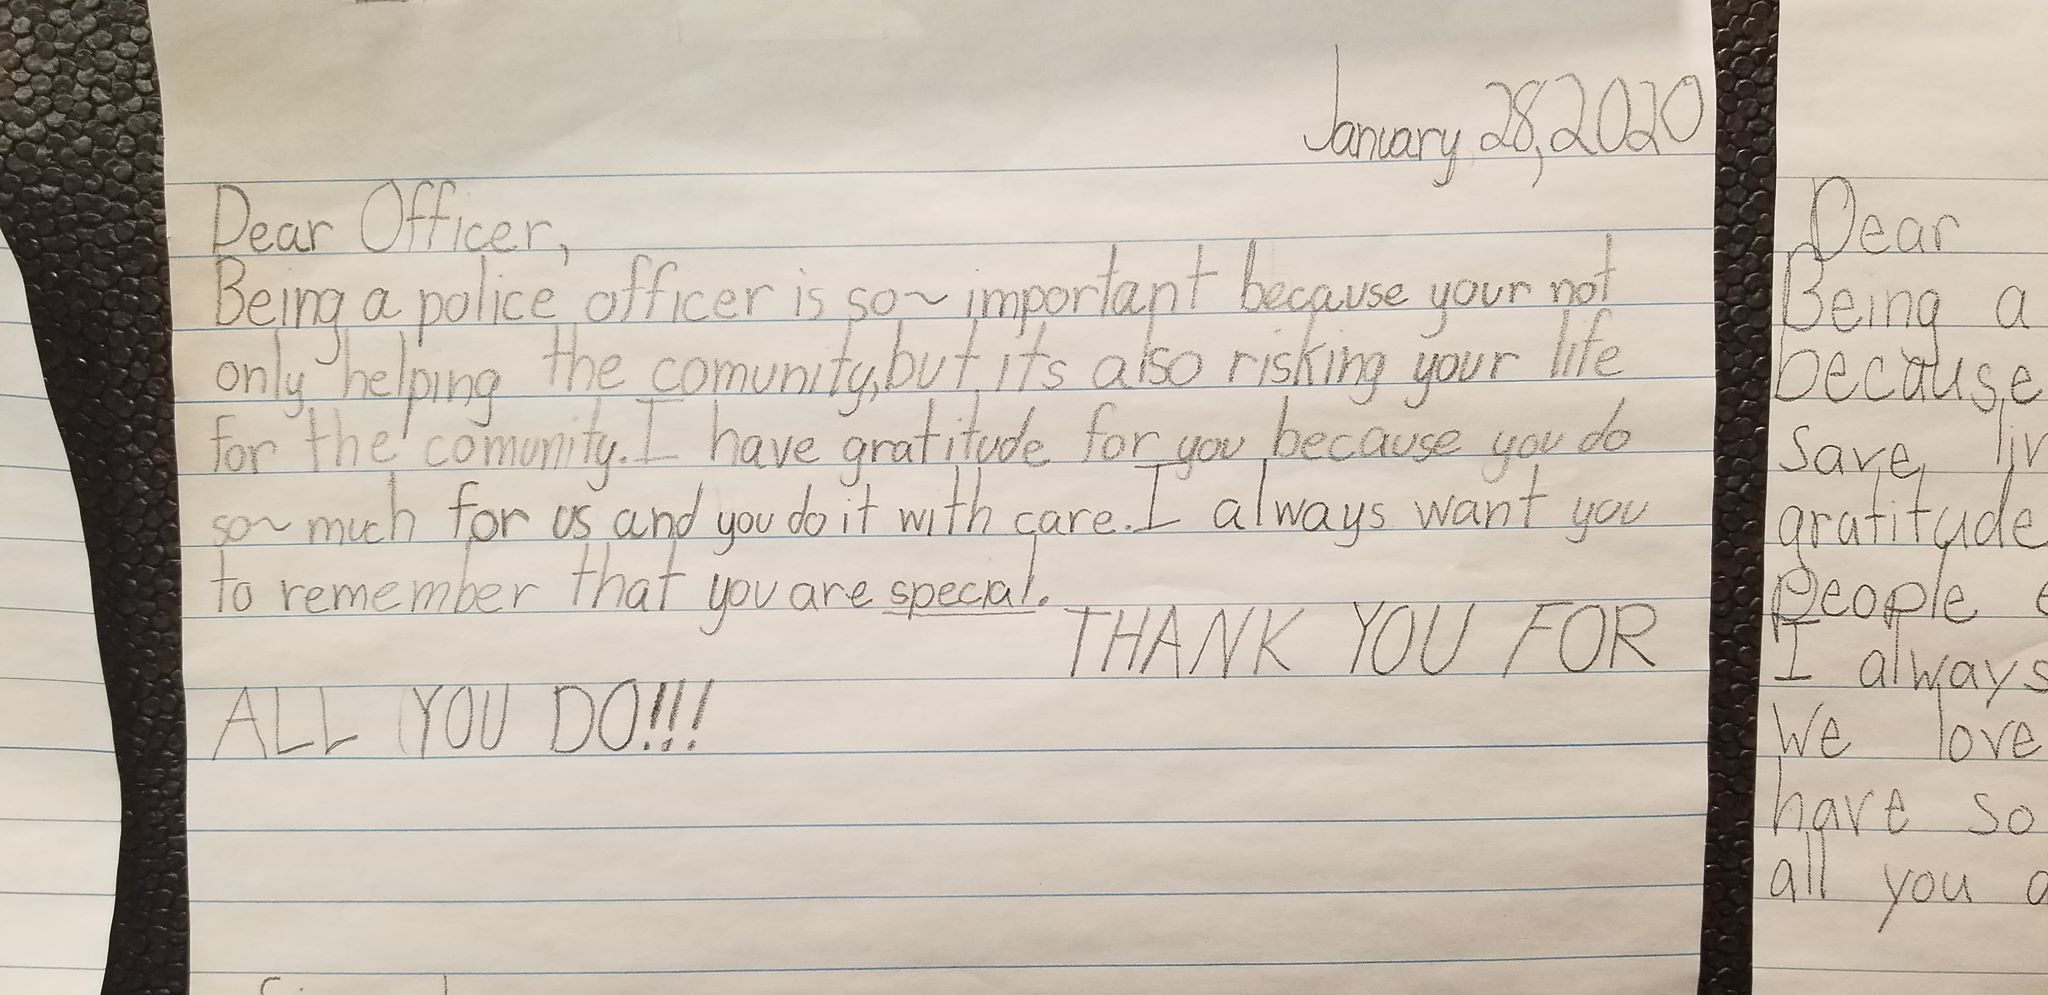 January 28, 2020
Dear Officer,
Being a police officer is so~ important because your not
only helping the comunity, but its also risking your life
for the comunity. I have gratitude for you because you do
so~ much for us and you do it with care. I always want you
to remember that you are special.
THANK YOU FOR
ALL YOU DO!!!
Dear
Being a
because
save
gratitude
people
I always
We love
have so
all you